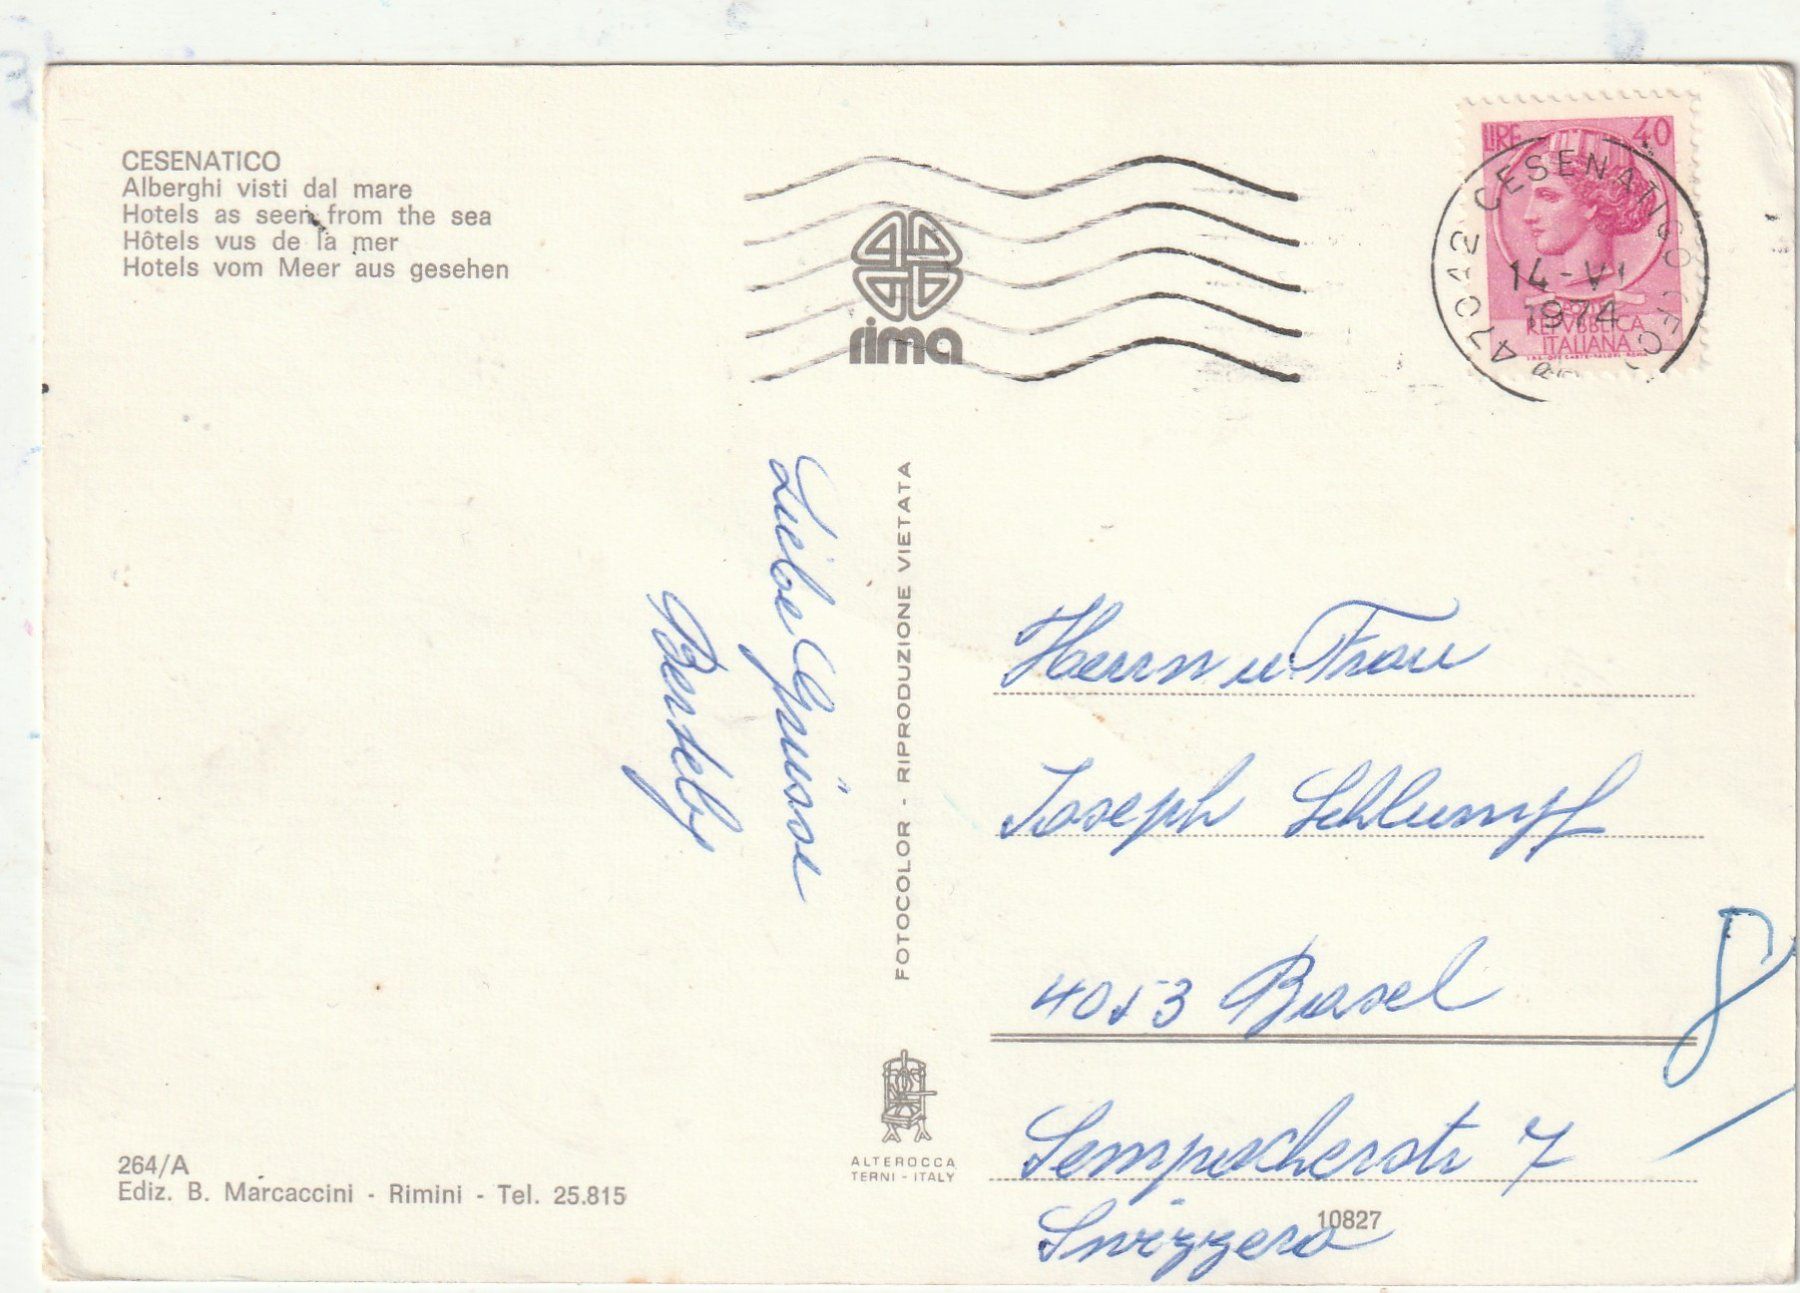 CESENATICO
Alberghi visti dal mare
Hotels as seen from the sea
Hôtels vus de la mer
Hotels vom Meer aus gesehen
rima
LIRE 40
47042 CESENATICO (FO)
14-VI
1974
REPVBBLICA
ITALIANA
Liebe Grüsse
FOTOCOLOR - RIPRODUZIONE VIETATA
Herrn u Frau
Joseph Schlumpf
4053 Basel
Sempacherstr 7
Svizzera
8
ALTEROCCA
TERNI - ITALY
264/A
Ediz. B. Marcaccini - Rimini - Tel. 25.815
10827